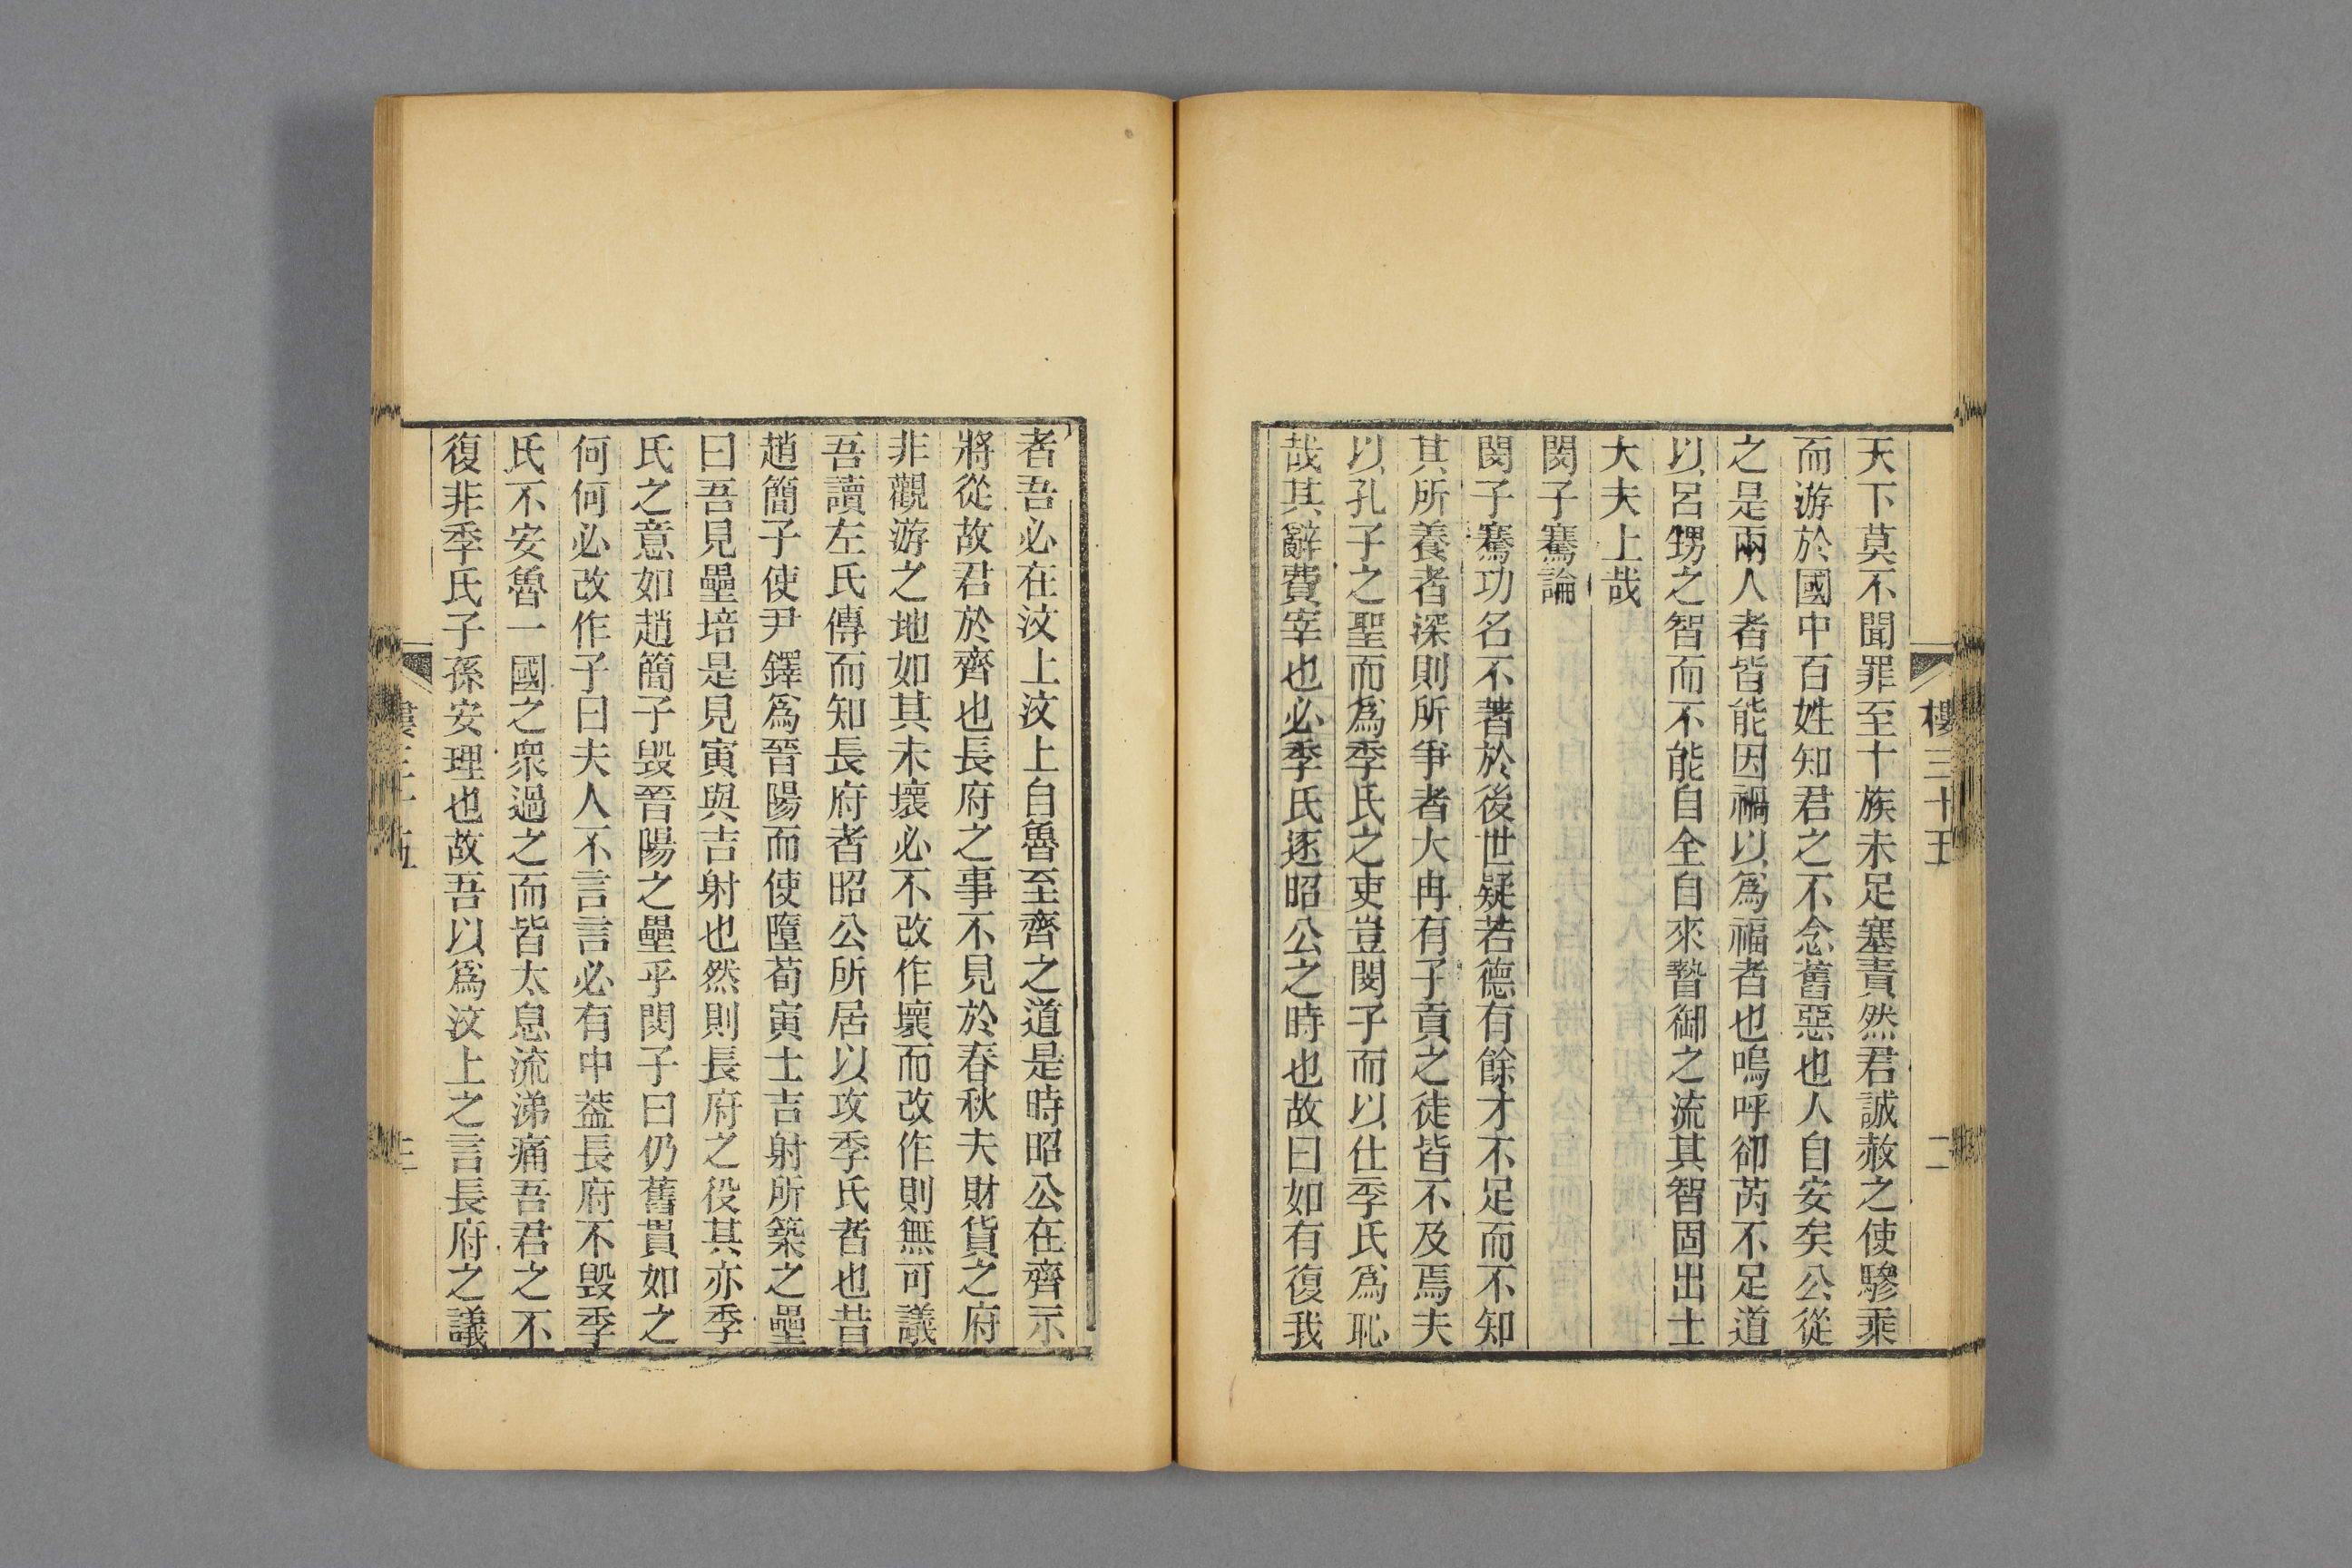 樓三十五
二
天下莫不聞罪至十族未足塞責然君誠赦之使驂乘
而游於國中百姓知君之不念舊惡也人自安矣公從
之是兩人者皆能因禍以爲福者也嗚呼卻芮不足道
以呂甥之智而不能自全自來暬御之流其智固出士
大夫上哉
閔子騫論
閔子騫功名不著於後世疑若德有餘才不足而不知
其所養者深則所爭者大冉有子貢之徒皆不及焉夫
以孔子之聖而爲季氏之吏豈閔子而以仕季氏爲恥
哉其辭費宰也必季氏逐昭公之時也故曰如有復我
者吾必在汶上汶上自魯至齊之道是時昭公在齊示
將從故君於齊也長府之事不見於春秋夫財貨之府
非觀游之地如其未壞必不改作壞而改作則無可議
吾讀左氏傳而知長府者昭公所居以攻季氏者也昔
趙簡子使尹鐸爲晉陽而使墮荀寅士吉射所築之壘
曰吾見壘培是見寅與吉射也然則長府之役其亦季
氏之意如趙簡子毀晉陽之壘乎閔子曰仍舊貫如之
何何必改作子曰夫人不言言必有中葢長府不毀季
氏不安魯一國之衆過之而皆太息流涕痛吾君之不
復非季氏子孫安理也故吾以爲汶上之言長府之議